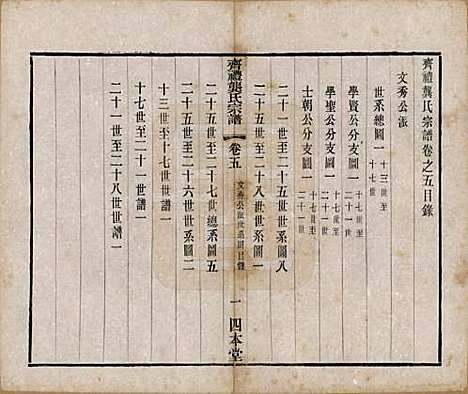 齊禮龔氏宗譜卷之五目錄
文秀公派
世系總圖一 十三世至十七世
學賢公分支圖一 十七世至二十一世
學聖公分支圖一 十七世至二十一世
士朝公分支圖一 十七世至二十一世
二十一世至二十五世世系圖八
二十五世至二十八世世系圖一
齊禮龔氏宗譜 卷五 文秀公派世系圖目錄 一 四本堂
二十五世至二十七世總系圖五
二十五世至二十六世系圖二
十三世至十七世世譜一
十七世至二十一世世譜一
二十一世至二十八世世譜一